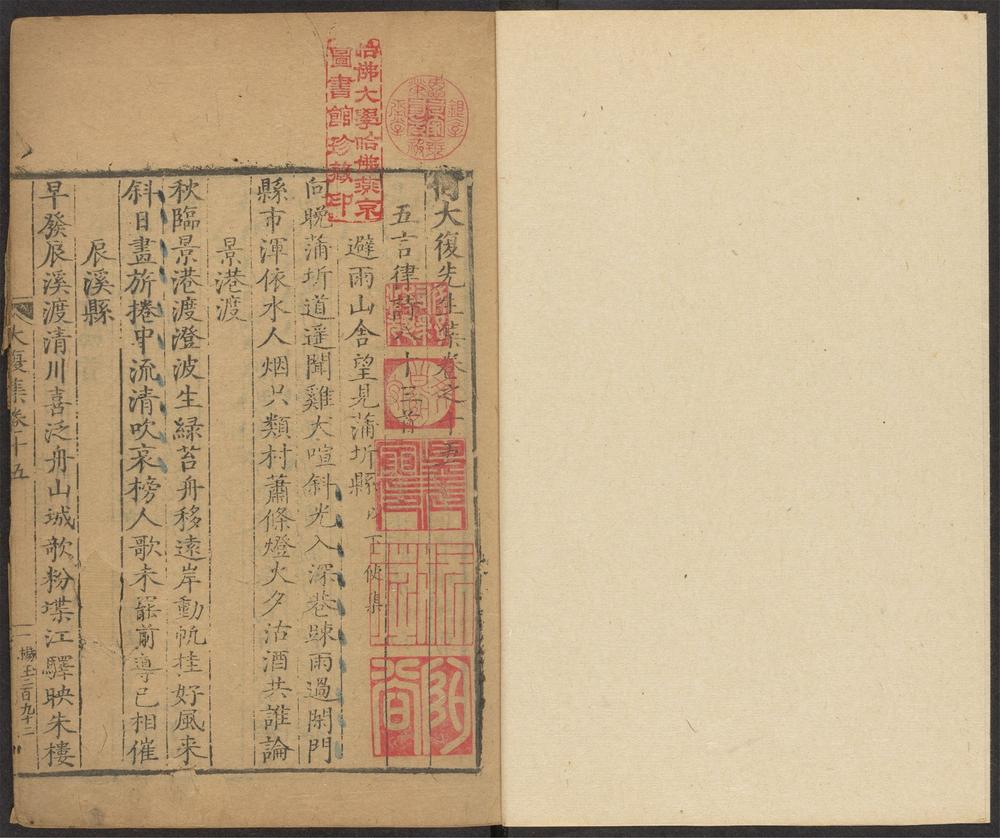 何大復先生集卷之十五
五言律詩八十三首
避雨山舍望見蒲圻縣以下使集
向晚蒲圻道遥聞雞犬喧斜光入深巷踈雨過閑門
縣市渾依水人烟只類村蕭條燈火夕沽酒共誰論
景港渡
秋臨景港渡澄波生緑苔舟移遠岸動帆挂好風来
斜日畫旂捲中流清吹哀榜人歌未罷前導已相催
辰溪縣
早發辰溪渡清川喜泛舟山城歌粉堞江驛映朱樓
大復集卷十五
一
二百九十二
哈佛大學哈佛燕京
圖書館珍藏印